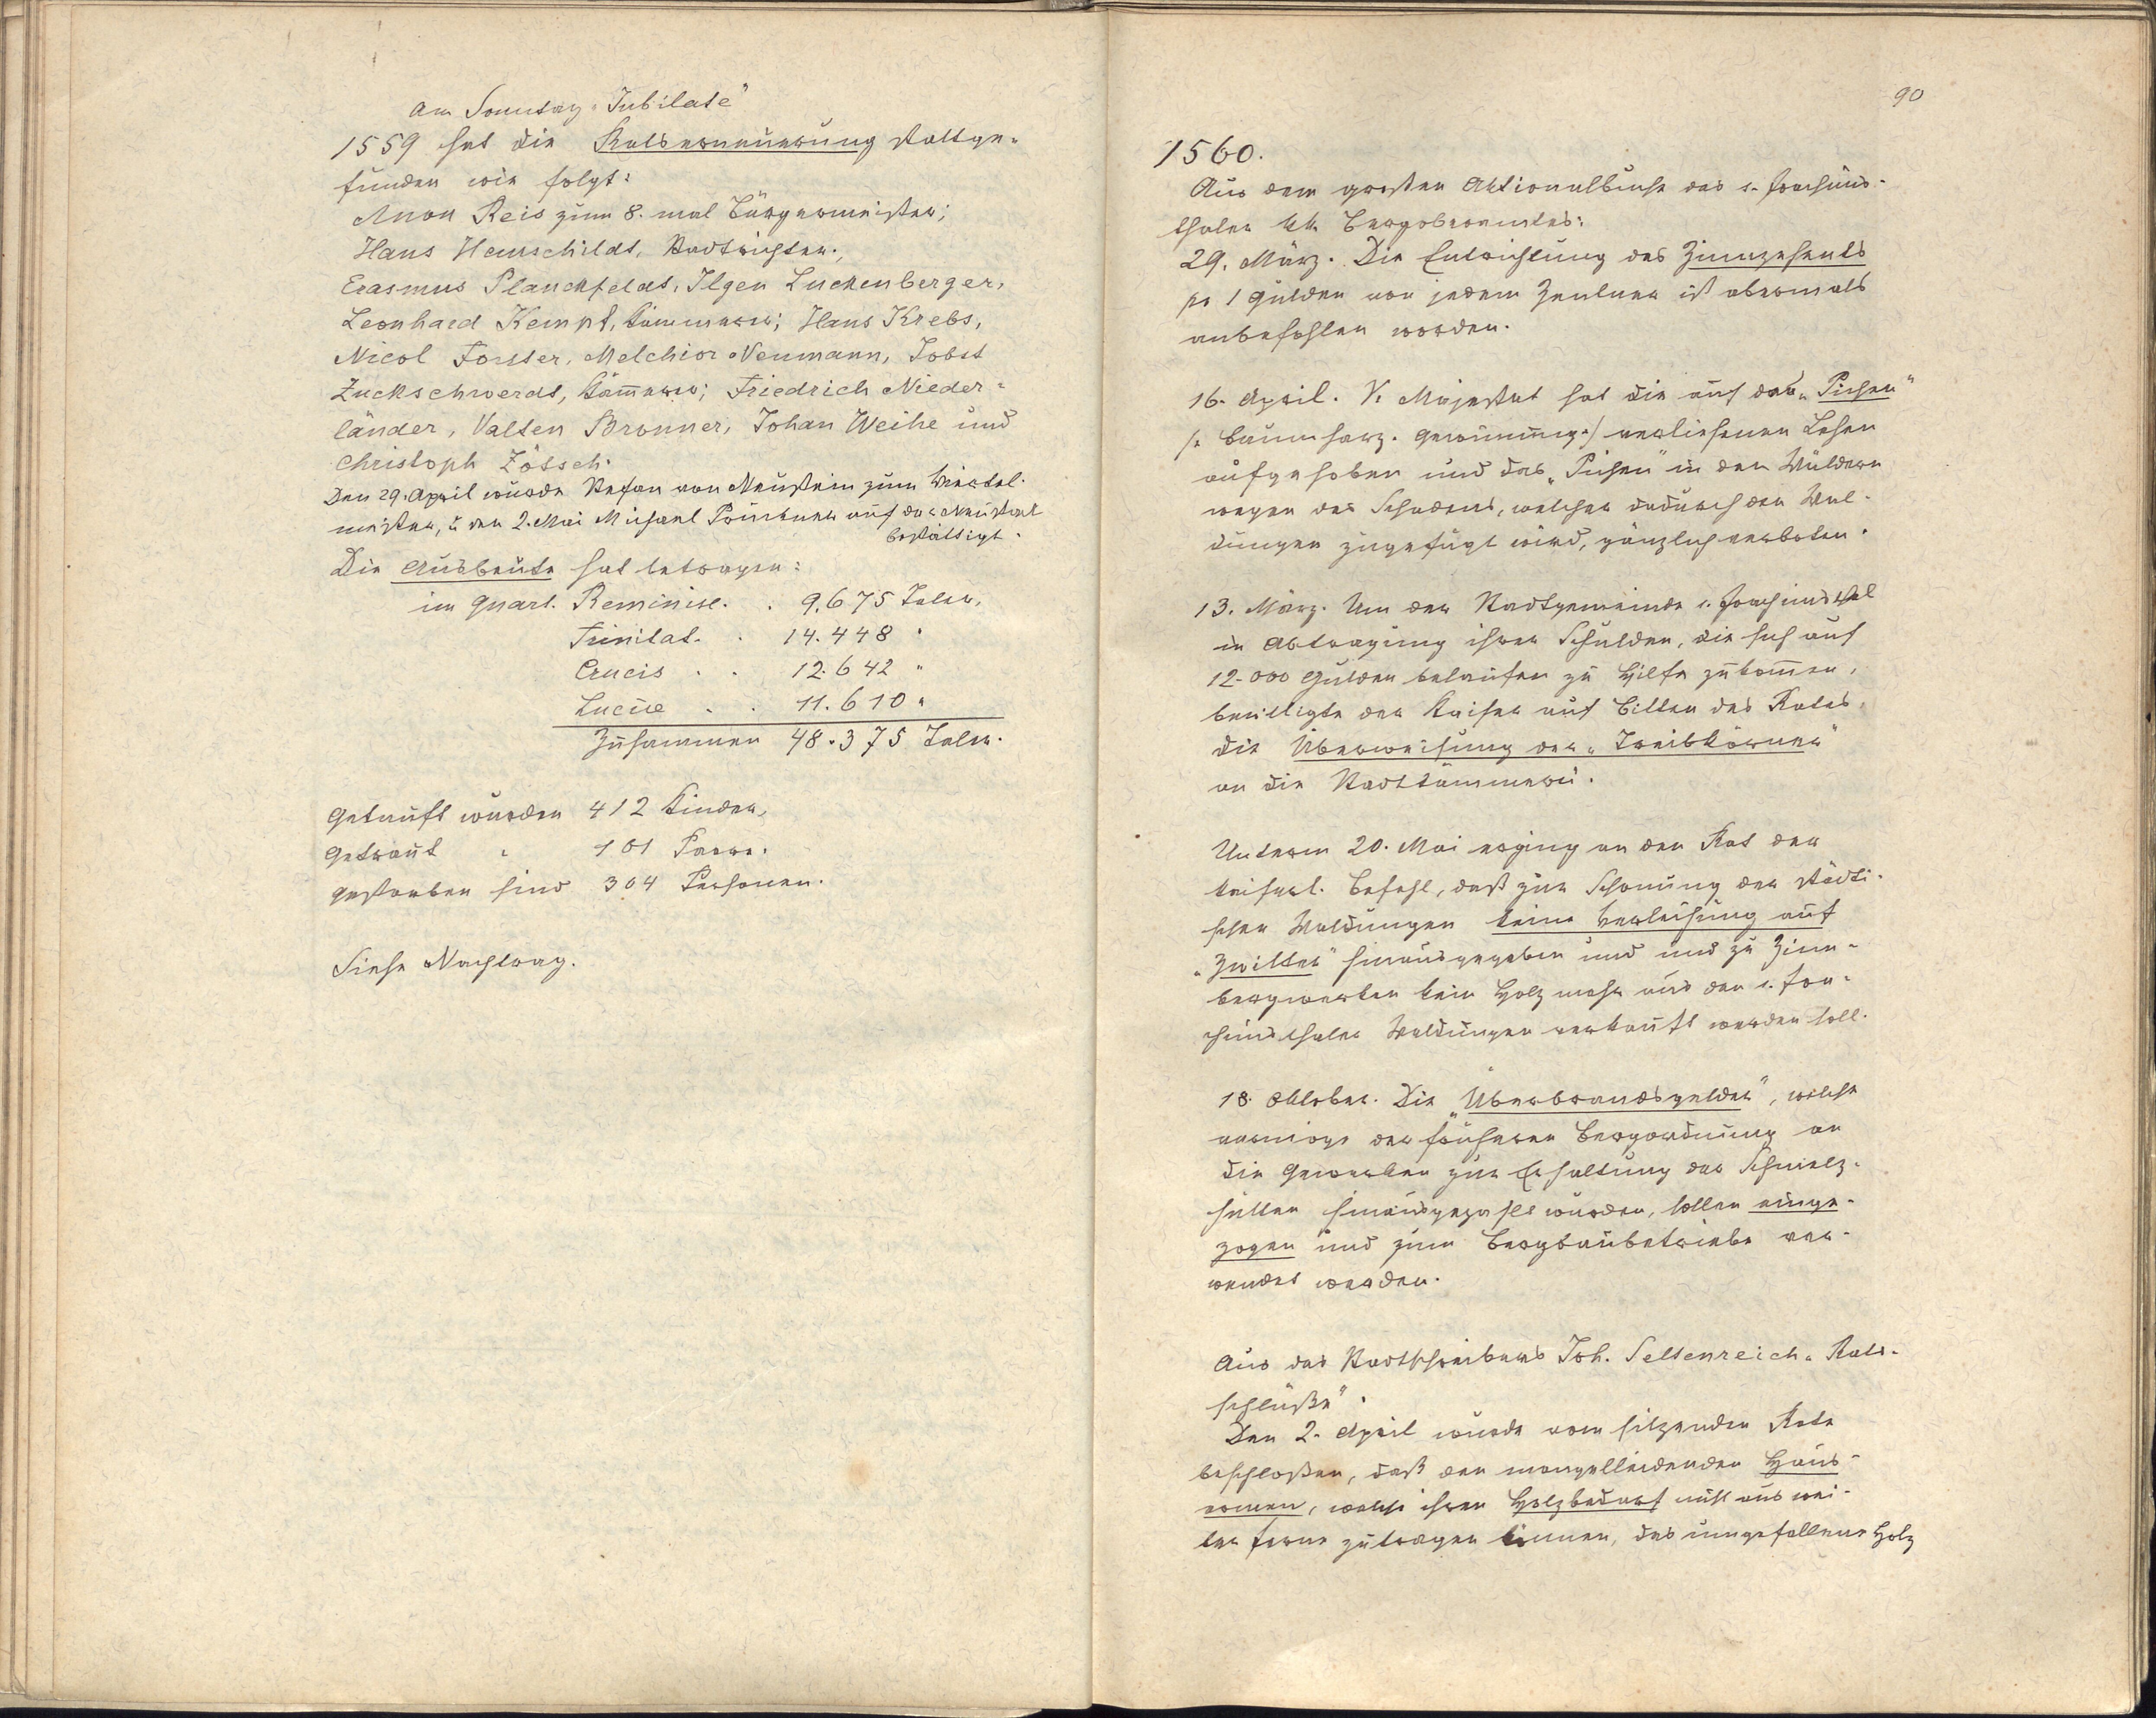 am Sonntag „Jubilate"
1559 hat die Ratserneuerung stattge-
funden wie folgt:
Anon Reis zum 8. mal Bürgermeister;
Hans Heuschildt, Stadtrichter;
Erasmus Planckfeldt, Ilgen Luckenberger,
Leonhard Kempf, Kämmerer; Hans Krebs,
Nicol Forster, Melchior Neumann, Jobst
Zuckschwerdt, Kämerer; Friedrich Nieder-
länder, Valten Bronner, Johan Weihe und
Christoph Zötsch.
Den 29. April wurde Stefan von Neustein zum Viertel-
meister, u. den 2. Mai Michael auf der Neustadt
bestättigt.
Die Ausbeute hat betragen:
im Quart. Reminisc. . 9.675 Taler,
Trinitat. . 14.448 "
Crucis . . 12.642 "
Luciæ . . 11.610 "
Zusammen 48.375 Taler.
Getauft wurden 412 Kinder,
Getraut " 101 Paare.
gestorben sind 304 Personen.
Siehe Nachtrag.
90
1560.
Aus dem großen Aktionalbuche des s. Joachims-
thaler k.k. Bergoberamtes:
29. März. Die Entrichtung des Zinnzehents
pr 1 Gulden von jedem Zentner ist abermals
anbefohlen worden.
16. April. S. Majestat hat die auf das „Pichen"
/: Baumharz-Gewinnung :/ verliehenen Lehen
aufgehoben und das „Pichen" in den Wäldern
wegen des Schadens, welcher dadurch den Wal-
dungen zugefügt wird, gänzlich verboten.
13. März. Um der Stadtgemeinde s. Joachimsthal
in Abtragung ihrer Schulden, die sich auf
12.000 Gulden belaufen zu Hilfe zu komen,
bewilligte der Kaiser auf Bitten des Rates,
die Überweisung der „Treibkörner"
an die Stadtkämmerei.
Unterm 20. Mai erging an den Rat der
kaiserl. Befehl, daß zur Schonung der städti-
schen Waldungen keine Verleihung auf
„Zwitter" hinausgegeben und und zu Zinn-
bergwerken kein Holz mehr aus den s. Joa-
chimsthaler Waldungen verkauft werden soll.
18. Oktober. Die „Überbrandsgelder", welche
vermöge der früheren Bergordnung an
die Gewerken zur Erhaltung der Schmelz-
hütten hinausgezahlt wurden, sollen einge-
zogen und zum Bergbaubetriebe ver-
wendet werden.
Aus des Stadtschreibers Joh. Seltenreich „Rats-
schlüße".
Den 2. April wurde vom sitzenden Rate
beschloßen, daß den mangelleidenden Haus-
armen, welche ihren Holzbedarf nicht aus wei-
ter Ferne zutragen können, das umgefallene Holz